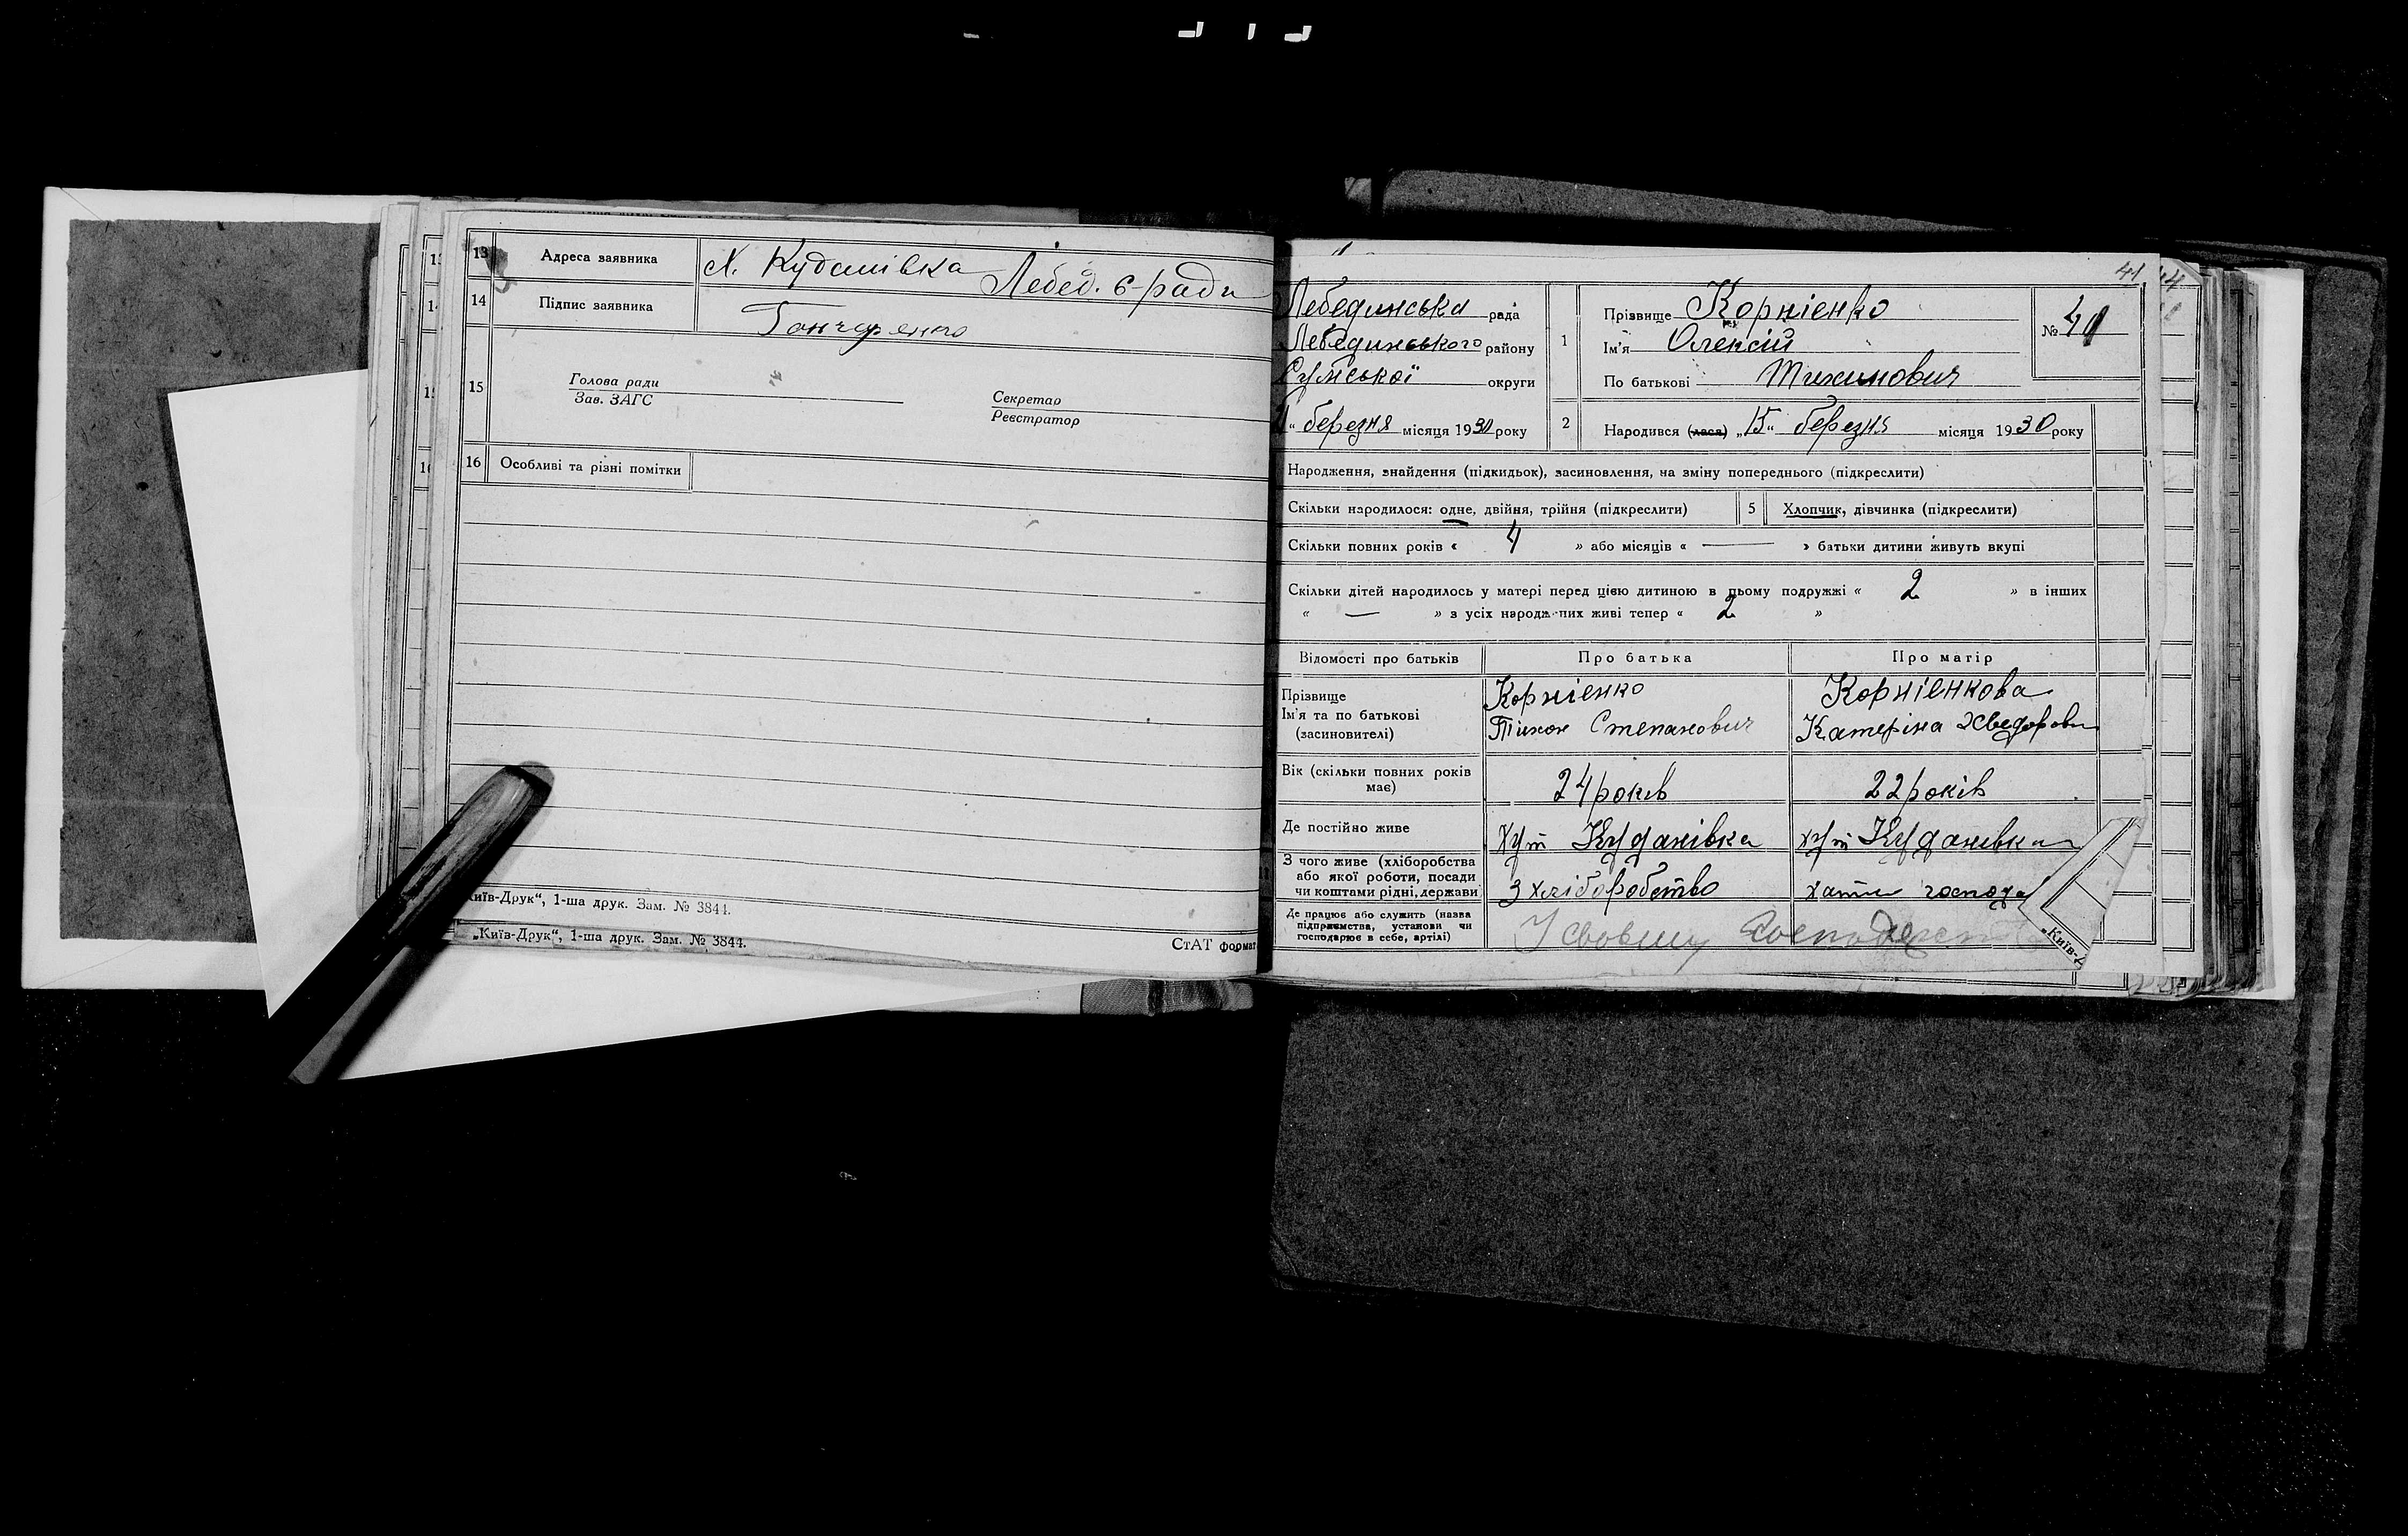 13 Адреса заявника х. Куданівка Лебед. с-ради
14 Підпис заявника Гончаренко
15 Голова ради
Зав. ЗАГС
Секретар
Реєстратор
16 Особливі та різні помітки
„Київ-Друк“, 1-ша друк. Зам. № 3844.
„Київ-Друк“, 1-ша друк. Зам. № 3844.
СтАТ формат
41
Лебединська рада
Лебединського району
Сумської округи
березня місяця 1930 року
1 Прізвище Корнієнко
Ім'я Олексій
По батькові Тихинович
№ 41
2 Народився (лася) „15“ березня місяця 1930 року
Народження, знайдення (підкидьок), засиновлення, на зміну попереднього (підкреслити)
Скільки народилося: одне, двійня, трійня (підкреслити) 5 Хлопчик, дівчинка (підкреслити)
Скільки повних років « 4 » або місяців « — » батьки дитини живуть вкупі
Скільки дітей народилось у матері перед цією дитиною в цьому подружжі « 2 » в інших
« — » з усіх народжених живі тепер « 2 »
Відомості про батьків Про батька Про матір
Прізвище Корнієнко Корніенкова
Ім'я та по батькові Тихон Степанович Катеріна Хведоровн
(засиновителі)
Вік (скільки повних років має) 24 років 22 років
Де постійно живе хут Куданівка хут Куданивка
З чого живе (хліборобства
або якої роботи, посади
чи коштами рідні, держави) З хліборобство хатне господ
Де працює або служить (назва
підприємства, установи чи
господарює в себе, артілі) У своєму
„Київ-Д